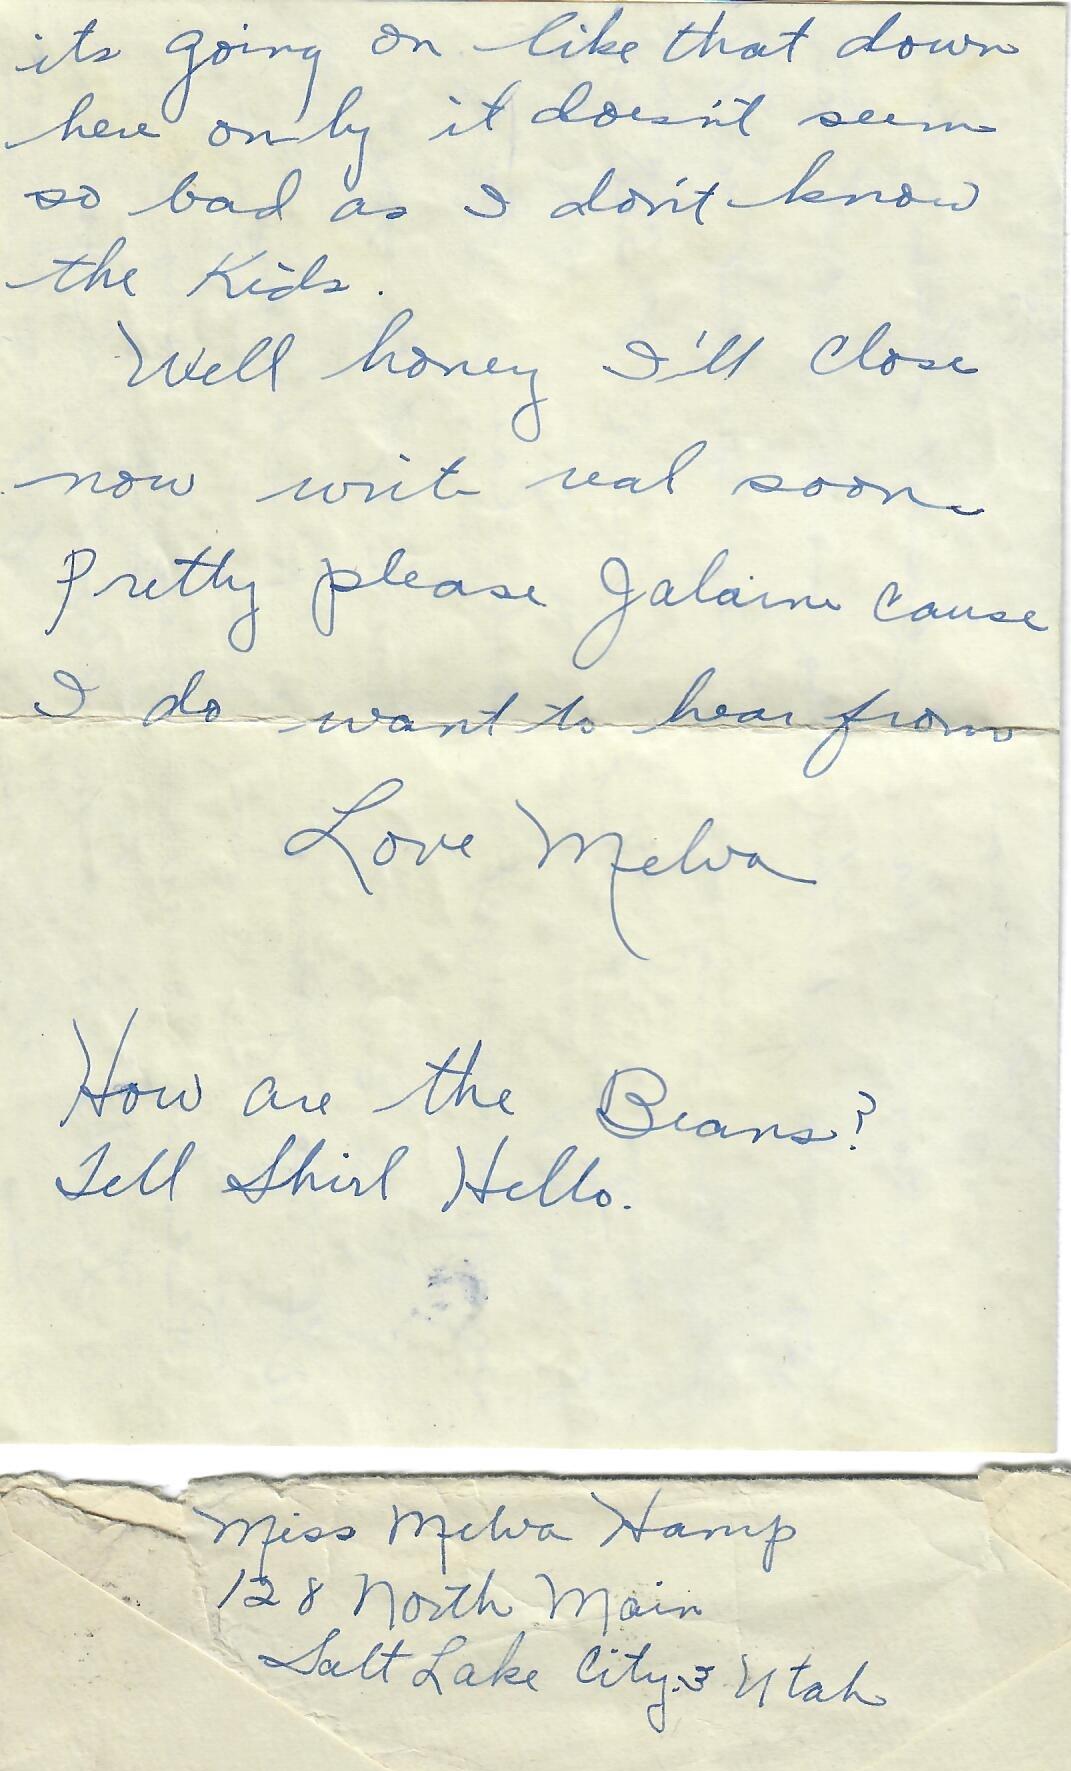 its going on like that down
here only it doesn't seem
so bad as I don't know
the Kids.
Well honey I'll close
now write real soon
Pretty please Jalaine cause
I do want to hear from
Love Melva
How are the Beans?
Tell Shirl Hello.
Miss Melva Hamp
128 North Main
Salt Lake City 3 Utah